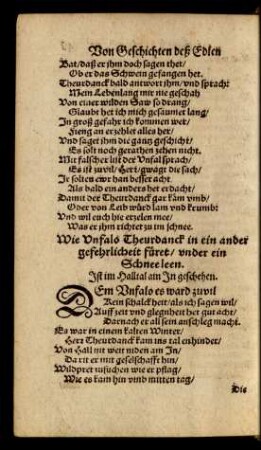 Von Geschichten deß Edlen
Bat/ daß er jhm doch sagen thet/
Ob er das Schwein gefangen het.
Theurdanck bald antwort jhm/ vnd sprach:
Mein Lebenlang mir nie geschah
Von einer wilden Saw so drang/
Glaubt het ich mich gesaumet lang/
In groß gefahr ich kommen wer/
Fieng an erzehlet alles her/
Vnd saget jhm die gantz geschicht/
Es solt noch gerathen zehen nicht.
Mit falscher list der Vnfal sprach/
Es ist zuvil/ Herr/ gwägt die sach/
Ir solten ewr han besser acht.
Als bald ein anders het erdacht/
Damit der Theurdanck gar käm vmb/
Oder von Leib würd lam vnd krumb:
Vnd wil euch hie erzelen mee/
Was er jhm richtet zu im schnee.
Wie Vnfalo Theurdanck in ein ander
gefehrlicheit füret/ vnder ein
Schneeleen.
Ist im Halltal am In geschehen.
DEm Vnfalo es ward zuvil
Kein schalckheit/ als ich sagen wil/
Auff zeit vnd glegnheit her gut acht/
Darnach er all sein anschleg macht.
Es war in einem kalten Winter/
Herr Theurdanck kam ins tal enhinder/
Von Hall nit weit niden am In/
Da rit er mit gesellschafft hin/
Wildpret zusuchen wie er pflag/
Wie es kam hin vmb mitten tag/
Die